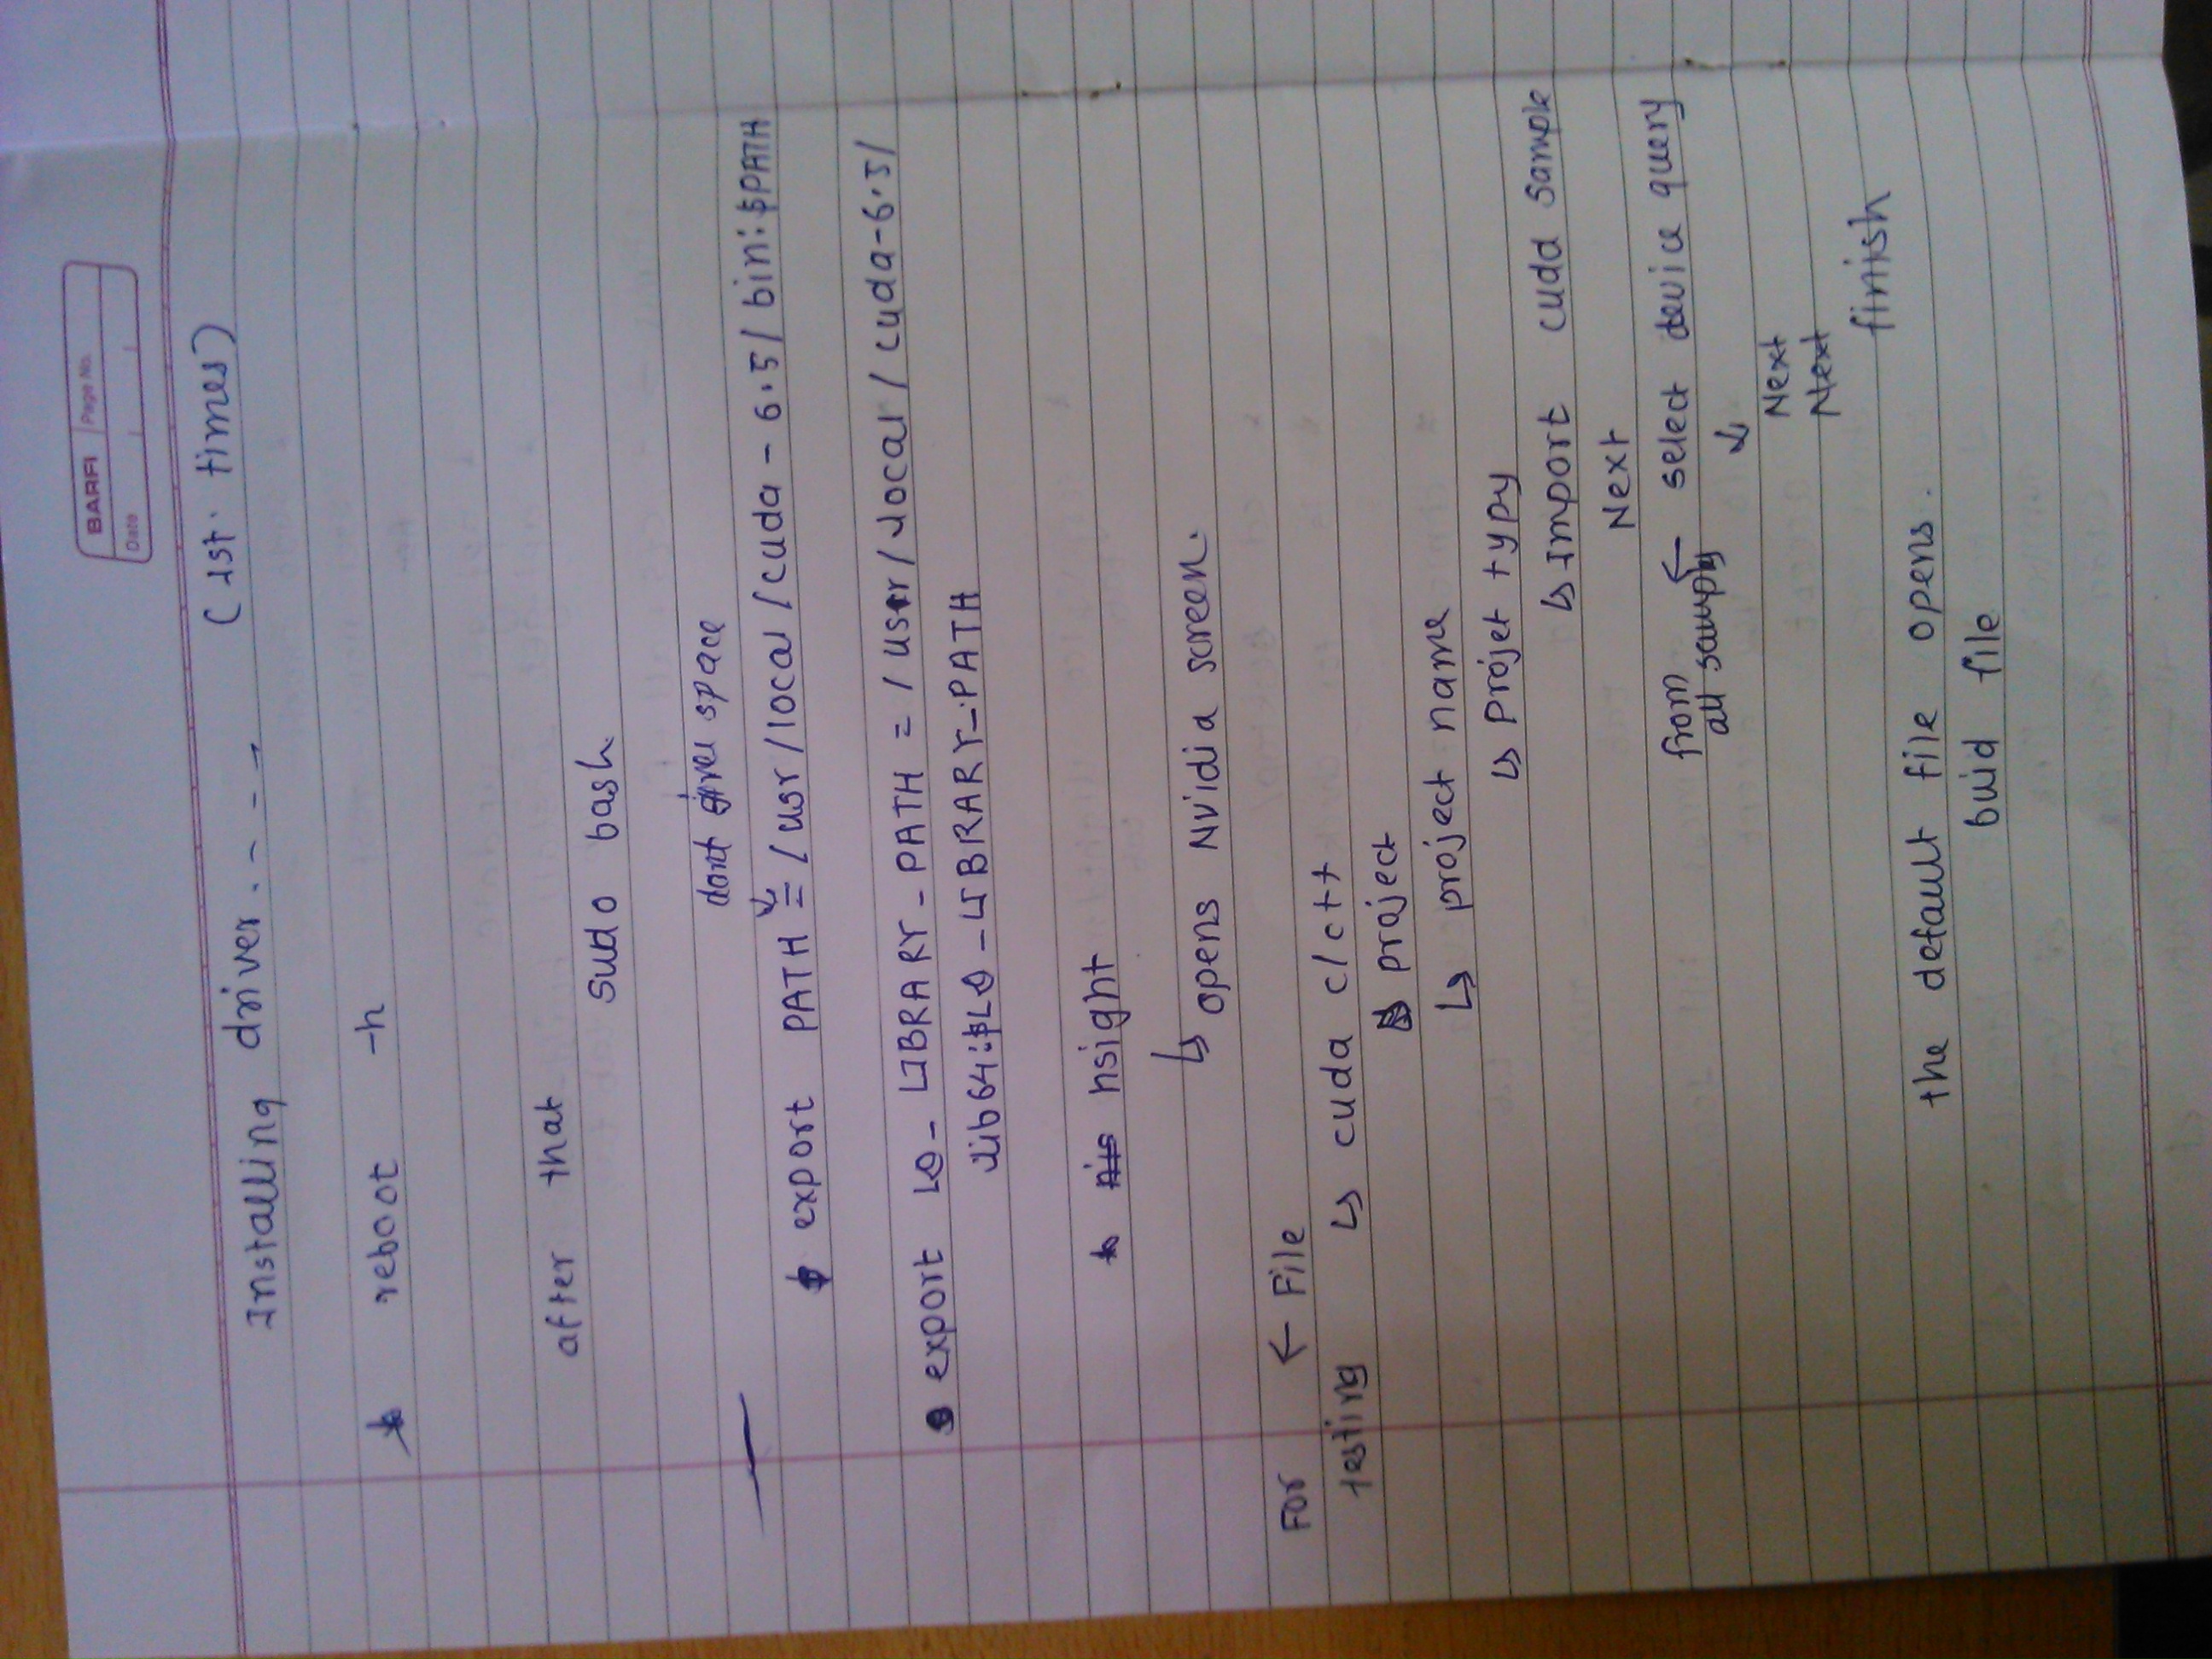 BARFI Page No.
Date / /
Installing driver. - - - (1st. times)
reboot -h
after that
sudo bash
dont give space
export PATH = /usr/local/cuda - 6.5/bin:$PATH
export LD_LIBRARY_PATH = /usr/local/cuda-6.5/
lib64:$LD_LIBRARY_PATH
nsight
↳ opens Nvidia screen.
For ← File
testing ↳ cuda c/c++
↳ project
↳ project name
↳ projet typy
↳ Import cuda sample
Next
from ← select device query
all sample ↓
Next
Next
finish
the default file opens.
buid file